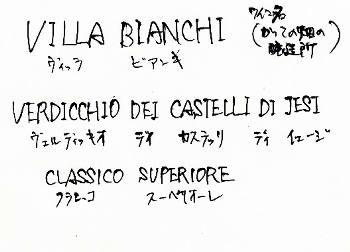 VILLA BIANCHI
ヴィッラ ビアンキ
ワイン名
(かつての畑の
醸造所)
VERDICCHIO DEI CASTELLI DI JESI
ヴェルディッキオ デイ カステッリ ディ イエージ
CLASSICO SUPERIORE
クラシコ スーペリオーレ